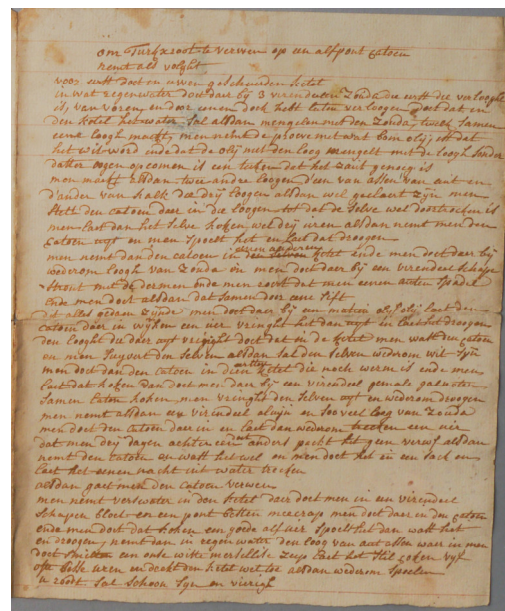 om Turkxroot te verwen op een alfpont catoen
nemt als volght
voor erst doet en uwen geschuerden ketel
in wat regenwater doet daer bij 3 virendeelen Zonda die erst die verlooght
is, van voren, en door eenen doek hebt laten verloogen doet dat in
den ketel het water sal alsdan mengelen met den Zonda twelk samen
eene loogh maekt, men nemt de proeve met wat bom olij, tot dat
het wit word indedat de olij met den loog mengelt met de loogh sonder
datter oogen op comen is een teeken dat het Zaut genoeg is
men maekt alsdan twee andere loogen d'een van assen van aut en
d'ander van kalk die dij loogen alsdan wel geclaert zijn men
stelt den catoen daer in die loogen tot dat de selve wel doortrocken is
men laet dan het selve koken wel dij uren alsdan nemt men den
catoen uyt en men spoelt het en laet dat droogen
men nemt dan den catoen in den selven ketel ende men doet daer bij
wederom loogh van Zonda en men doet daer bij een virendeel schape
stront met de dermen onde men roert dat men eenen auten spadel
ende men doet alsdan dat samen door eene sift
dat alles gedaen zynde men doet daer bij een matien olyf olij laet den
catoen daer in wyken een uer vringht het dan uyt en laet het droogen
den looght die daer uyt vringht doet dat in de ketel men wast den catoen
en men suyvert den selven alsdan sal den selven wederom wit syn
men doet dan den catoen in dien ketel die noch werm is ende men
laet dat koken dan doet men daer bij een virendeel gemale galnoten
samen laten koken, men vringht den selven uyt en wederom droogen
men nemt alsdan een virendeel aluijn en soo veel loog van Zonda
men doet den catoen daer in en laet dan wederom trecken een uer
dat men dij dagen achter een doet anders packt het geen verwe alsdan
nemt den catoen en wast het wel en men doet het in een sack en
laet het eenen nacht int water trecken
alsdan gaet men den catoen verwen
men nemt verswater in den ketel daer doet men in een virendeel
schapen bloet en een pont besten meecrap men doet daer in den catoen
ende men doet dat koken een goede alf uer spoelt het dan wast het
en droogen, nemt dan in regen water den loog van aut assen waer in men
doet smilten een onse witte merselise zeep laet het stil coken vyf
ofte sesse uren en deckt den ketel wel toe alsdan wederom spoelen
u roodt sal schoon syn en vierigh